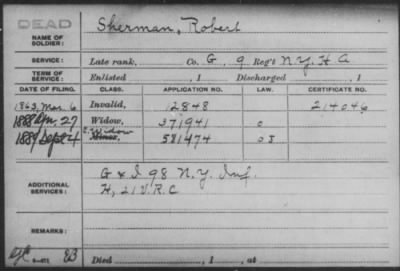 DEAD
NAME OF SOLDIER: Sherman, Robert
SERVICE: Late rank, Co. G, 9 Reg't N.Y. H A
TERM OF SERVICE: Enlisted , 1 Discharged , 1
DATE OF FILING. CLASS. APPLICATION NO. LAW. CERTIFICATE NO.
1863, Mar. 6 Invalid, 12848 214046
1888 27 Widow, 371941
1889 Sept 4 C. Widow Minor, 581474
ADDITIONAL SERVICES: G & I 98 N.Y. Inf.
H, 21 V.R.C
REMARKS:
Died , 1 , at